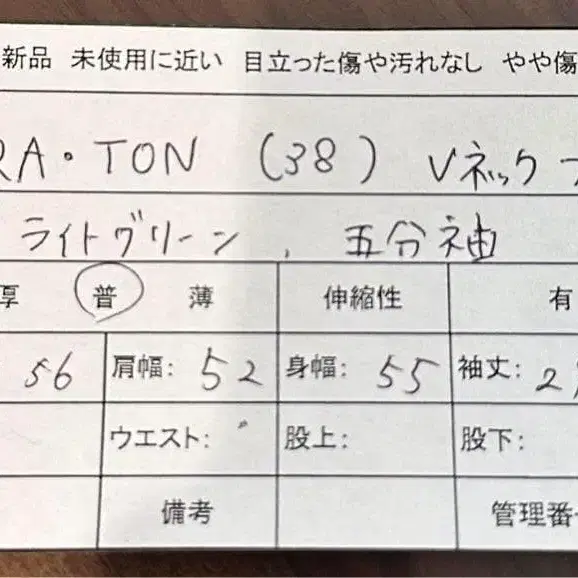 新品 未使用に近い 目立った傷や汚れなし やや傷
RA・TON (38) Vネック
ライトグリーン、五分袖
厚 普 薄 伸縮性 有
56 肩幅: 52 身幅: 55 袖丈: 2
ウエスト: 股上: 股下:
備考 管理番